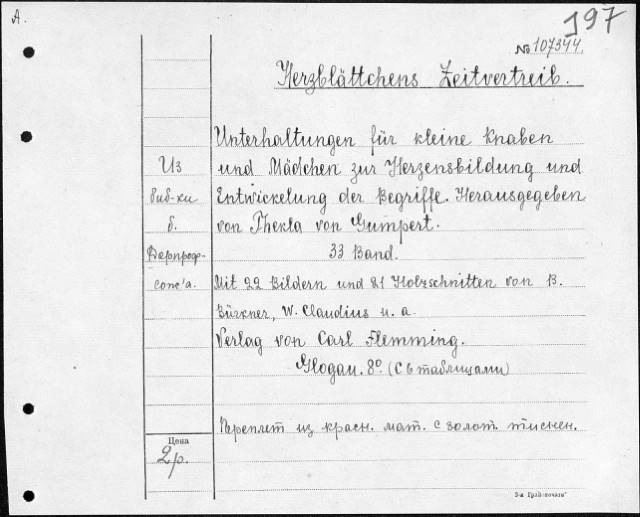 А.
197
№ 107344.
Herzblättchens Zeitvertreib.
Unterhaltungen für kleine Knaben
und Mädchen zur Herzensbildung und
Entwickelung der Begriffe. Herausgegeben
von Thekla von Gumpert.
33 Band.
Mit 22 Bildern und 81 Holzschnitten von B.
Bürkner, W. Claudius u. a.
Verlag von Carl Flemming.
Glogau. 8º. (С 6 таблицами)
Переплет из красн. мат. с золот. тиснен.
Из
биб-ки
б.
сопс'а.
Цена
2 р.